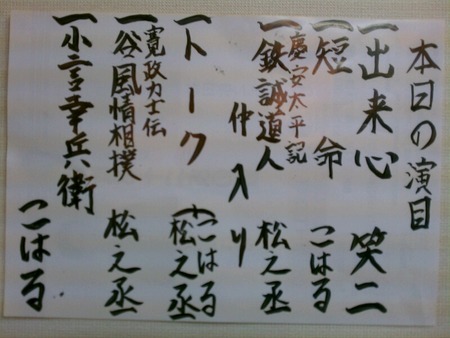 本日の演目
一出来心 笑二
一短命 こはる
慶安太平記
一鉄誠道人 松之丞
仲入り
一トーク (こはる
松之丞
寛政力士伝
一谷風情相撲 松之丞
一小言幸兵衛 こはる